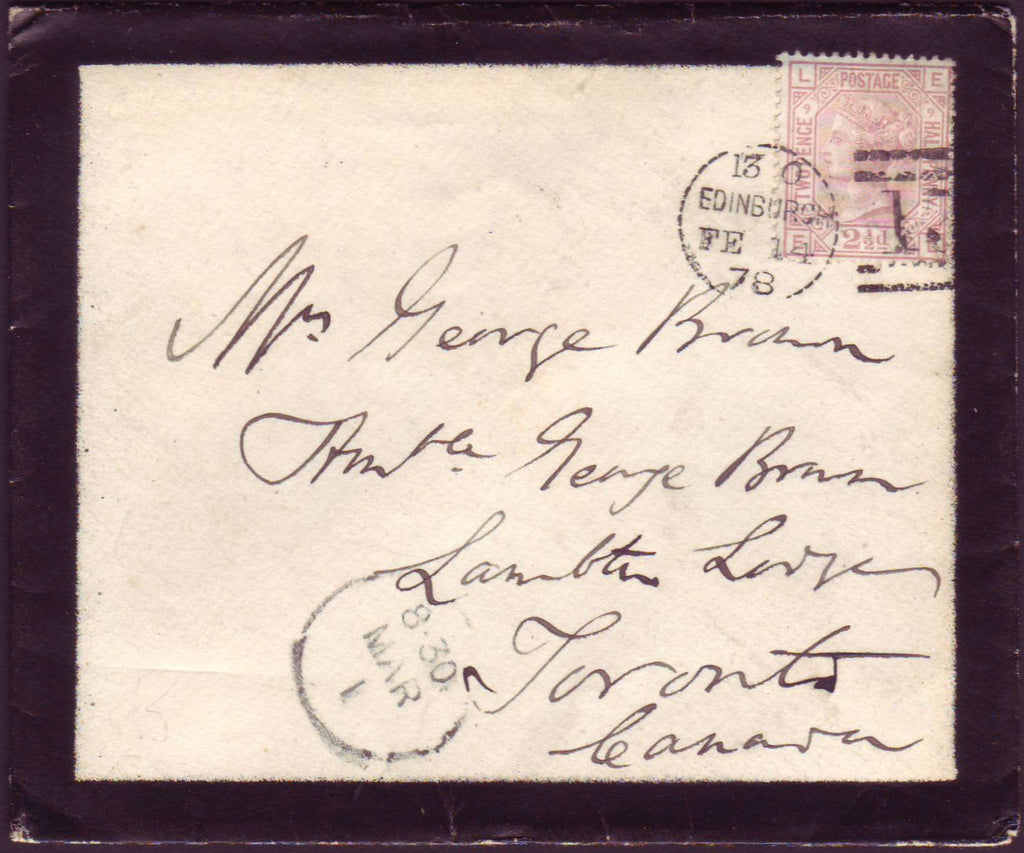 L POSTAGE E
9 9
TWO PENCE HALF PENNY
E 2½d L
13 0
EDINBURGH
FE 14
78
Mrs George Brown
Honble George Brown
Lambton Lodge
Toronto
Canada
8·30
MAR
1